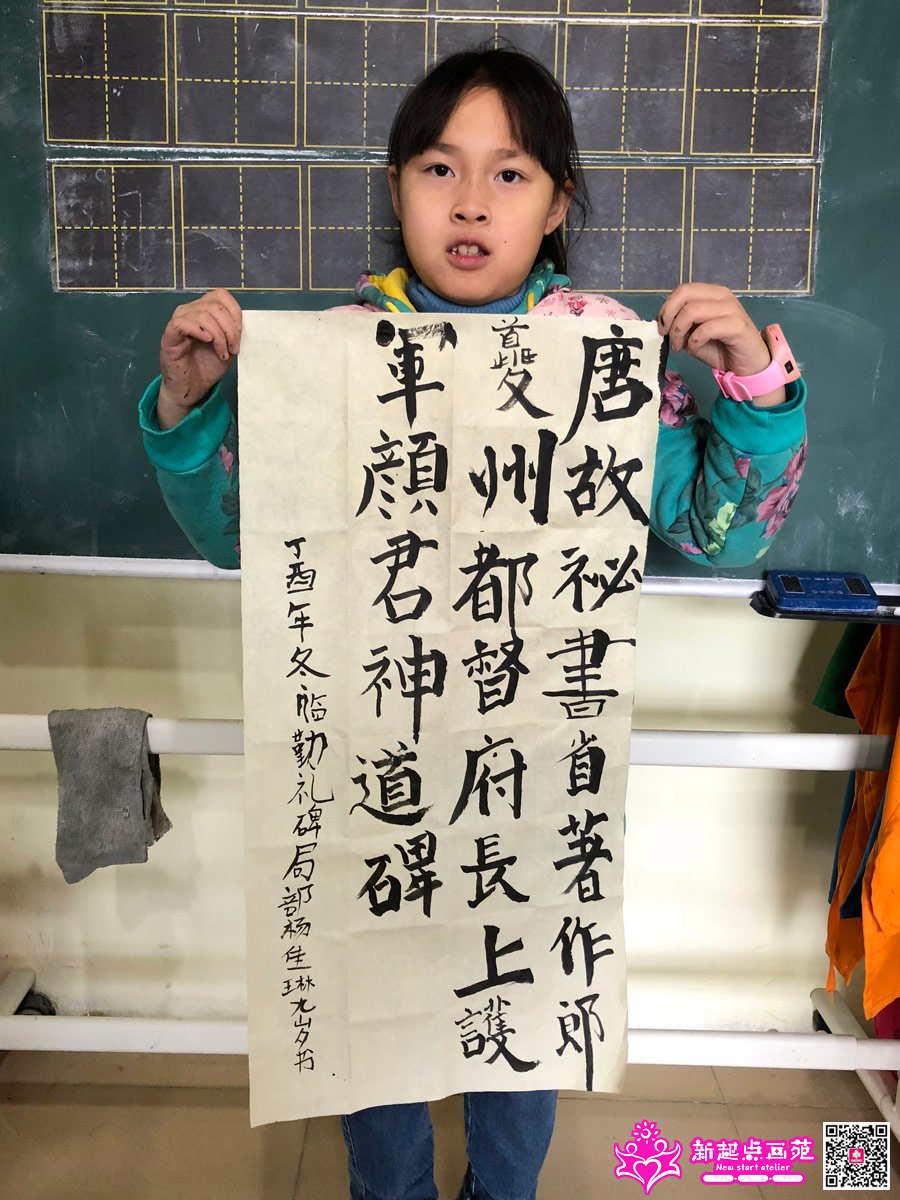 唐故祕書省著作郎
夔州都督府長上護
軍顏君神道碑
丁酉年冬临勤礼碑局部杨佳琳九岁书
新起点画苑
New start atelier